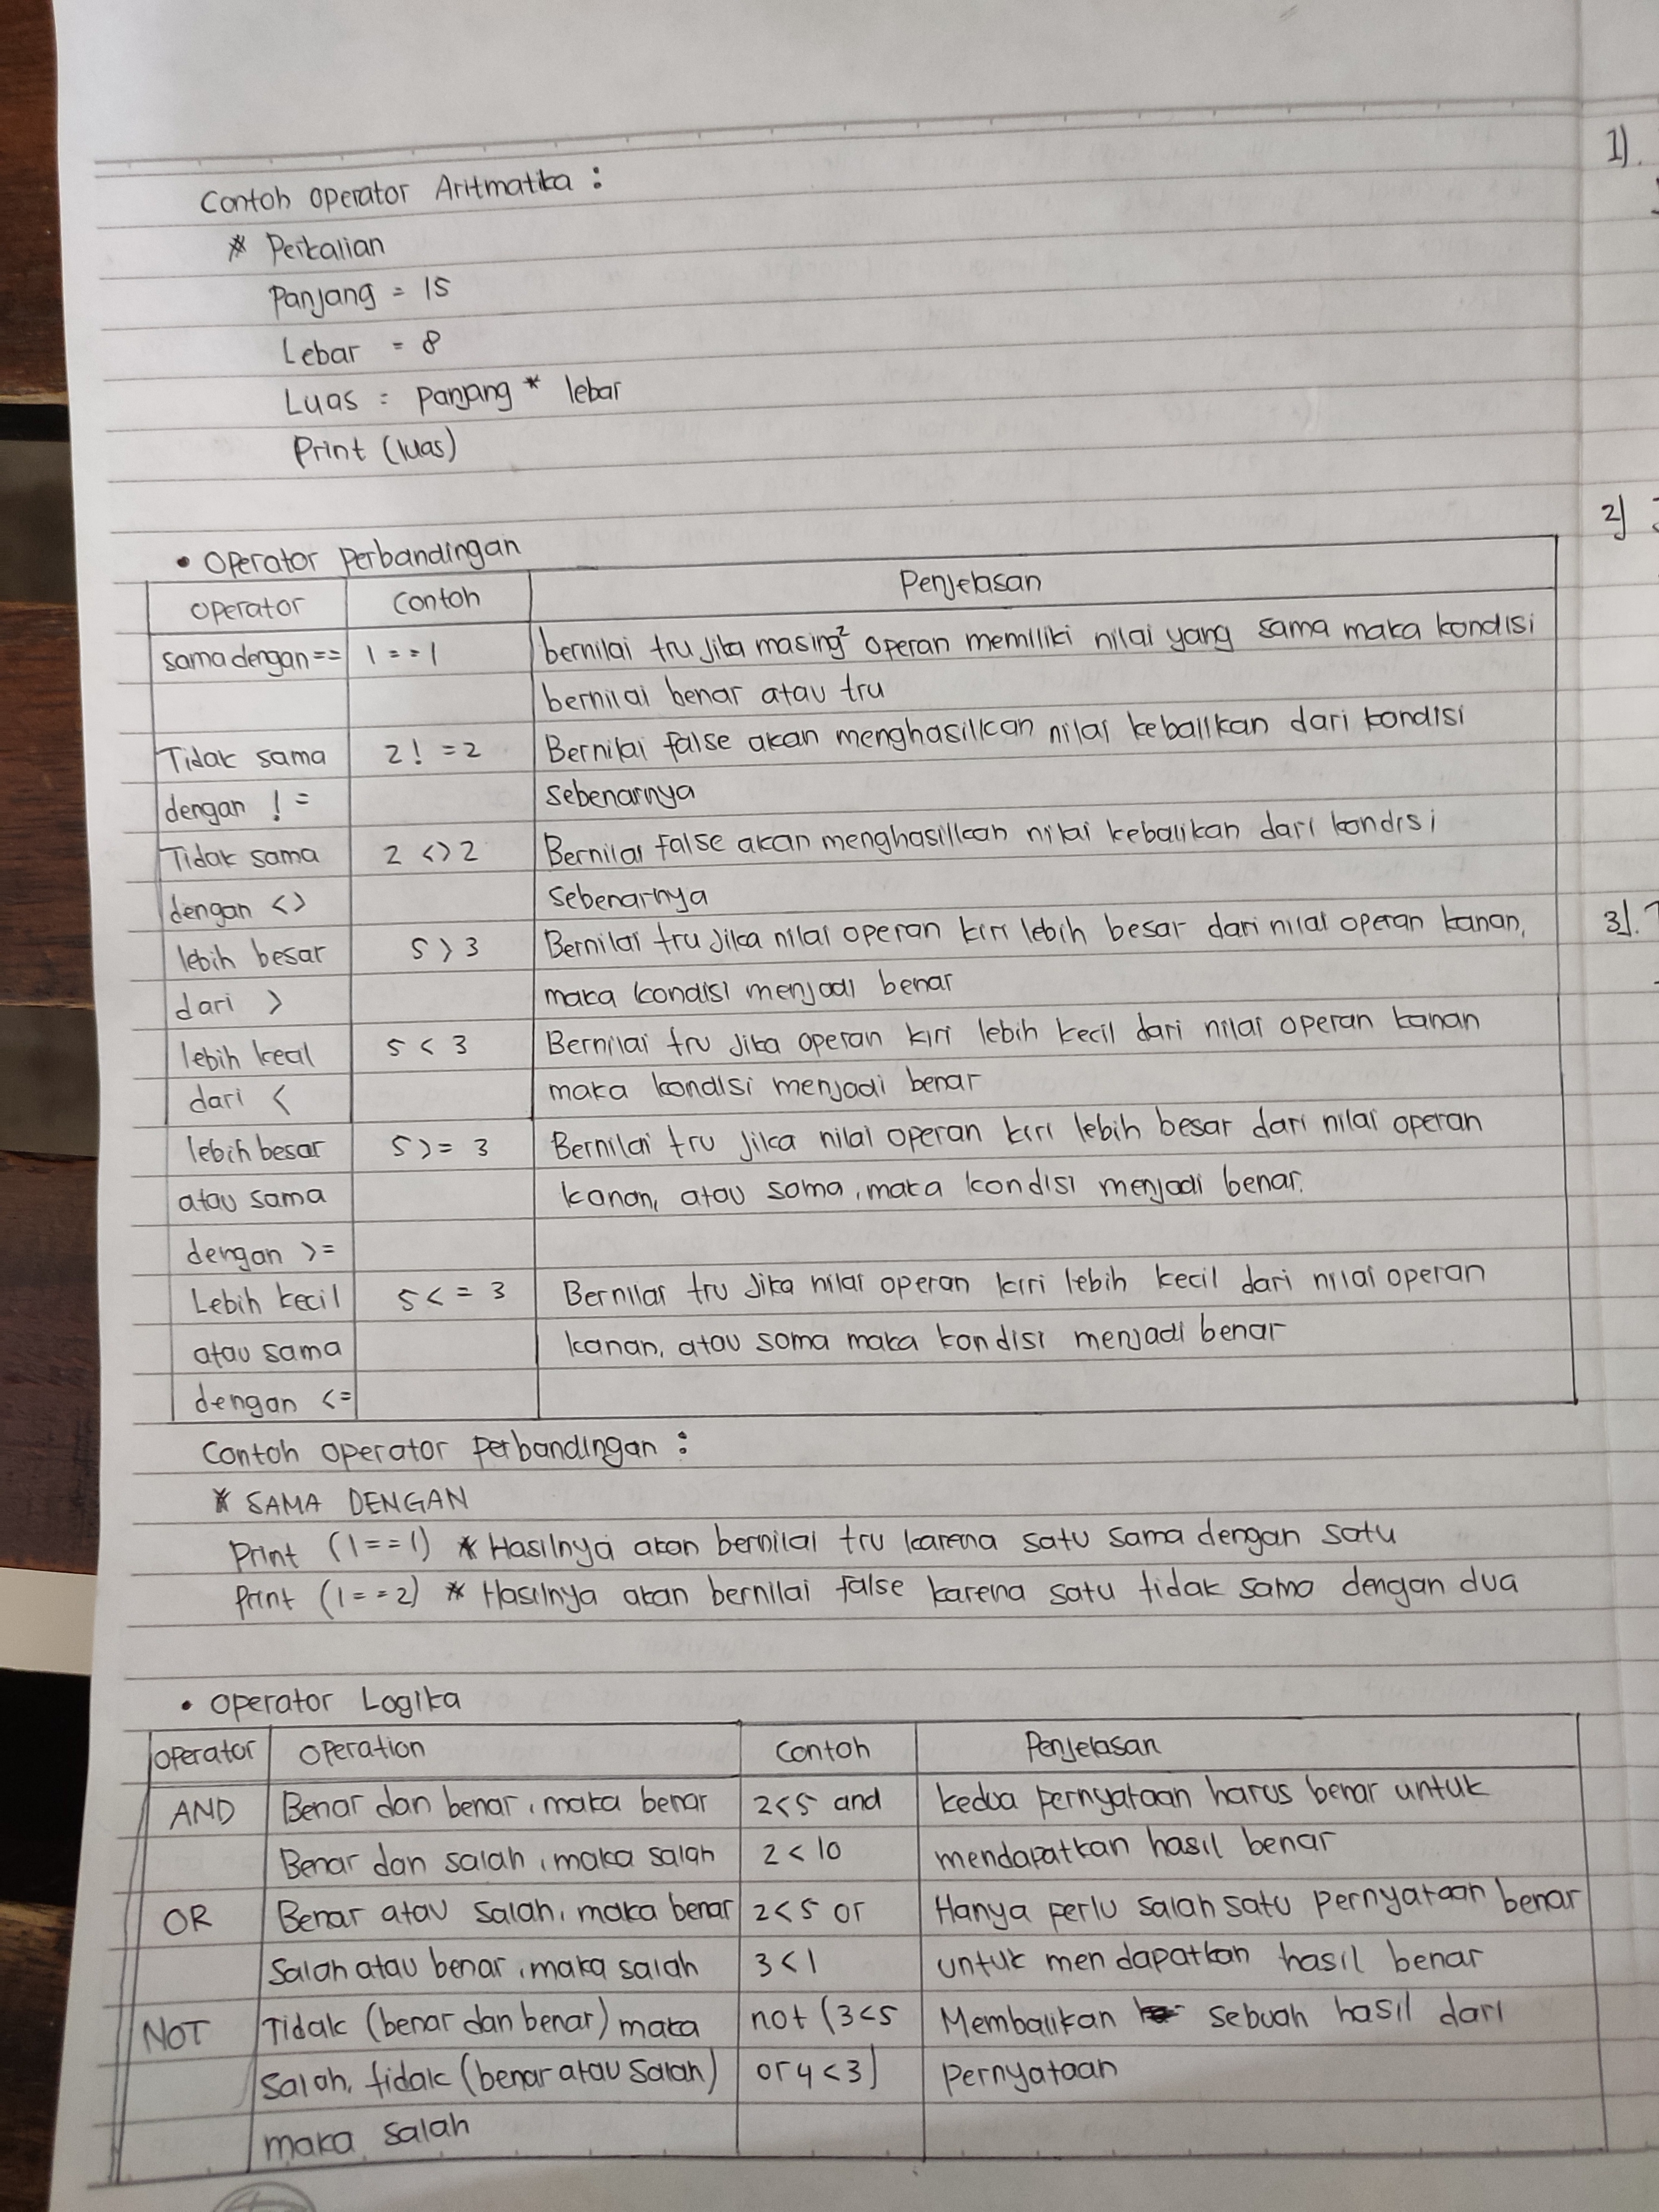 Contoh operator Aritmatika :
* Perkalian
Panjang = 15
Lebar = 8
Luas = panjang * lebar
Print (luas)
1).
2)
3).
• Operator perbandingan
operator | Contoh | Penjelasan
sama dengan == | 1 == 1 | bernilai tru jika masing² operan memiliki nilai yang sama maka kondisi
bernilai benar atau tru
Tidak sama | 2 ! = 2 | Bernilai false akan menghasilkan nilai kebalikan dari kondisi
dengan ! = | sebenarnya
Tidak sama | 2 <> 2 | Bernilai false akan menghasilkan nilai kebalikan dari kondisi
dengan <> | sebenarnya
lebih besar | 5 > 3 | Bernilai tru jika nilai operan kiri lebih besar dari nilai operan kanan,
dari > | maka kondisi menjadi benar
lebih kecil | 5 < 3 | Bernilai tru jika operan kiri lebih kecil dari nilai operan kanan
dari < | maka kondisi menjadi benar
lebih besar | 5 >= 3 | Bernilai tru jika nilai operan kiri lebih besar dari nilai operan
atau sama | kanan, atau sama, maka kondisi menjadi benar.
dengan >=
Lebih kecil | 5 <= 3 | Bernilai tru jika nilai operan kiri lebih kecil dari nilai operan
atau sama | kanan, atau sama maka kondisi menjadi benar
dengan <=
Contoh operator perbandingan :
* SAMA DENGAN
Print (1 == 1) * Hasilnya akan bernilai tru karena satu sama dengan satu
Print (1 == 2) * Hasilnya akan bernilai false karena satu tidak sama dengan dua
• operator Logika
operator | Operation | Contoh | Penjelasan
AND | Benar dan benar, maka benar | 2<5 and | kedua pernyataan harus benar untuk
Benar dan salah, maka salah | 2 < 10 | mendapatkan hasil benar
OR | Benar atau salah, maka benar | 2<5 or | Hanya perlu salah satu pernyataan benar
Salah atau benar, maka salah | 3<1 | untuk mendapatkan hasil benar
NOT | Tidak (benar dan benar) maka | not (3<5 | Membalikan sebuah hasil dari
salah, tidak (benar atau salah) | or 4<3) | pernyataan
maka salah